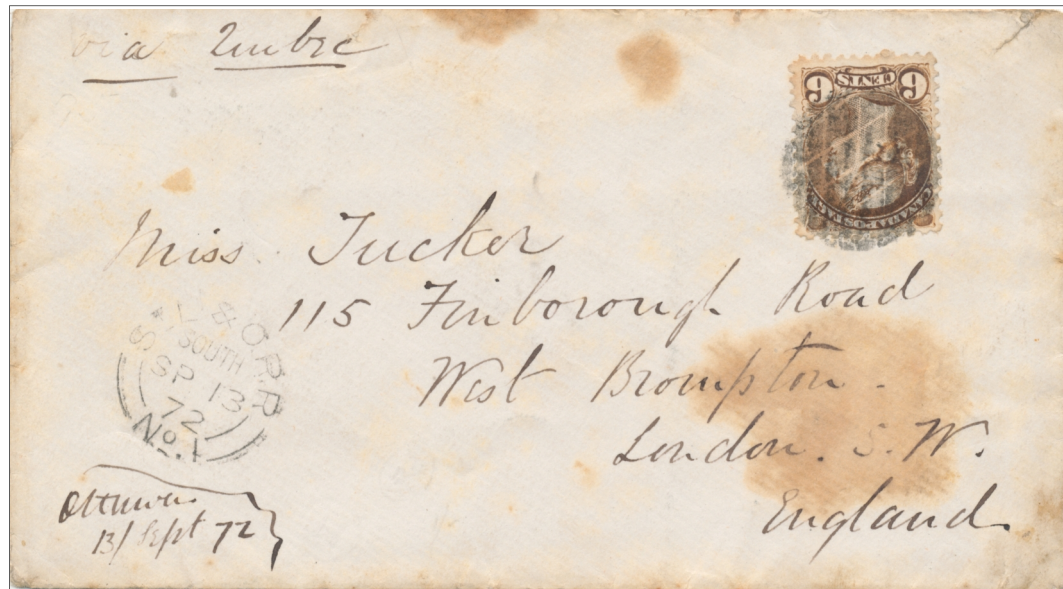 via Quebec
6 CENTS 6
CANADA POSTAGE
Miss Tucker
115 Finborough Road
West Brompton
London. S. W.
England
St L. & O. R. R
SOUTH
SP 13
72
No. 1
Ottawa
13/ Sept 72